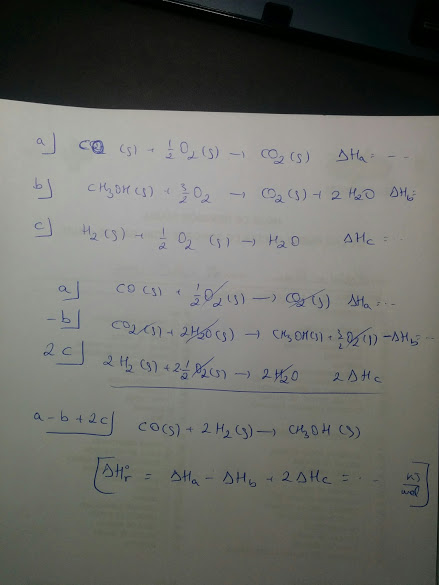 a] CO (g) + 1/2 O2 (g) → CO2 (g) ΔHa = ...
b] CH3OH (g) + 3/2 O2 → CO2 (g) + 2 H2O ΔHb=
c] H2 (g) + 1/2 O2 (g) → H2O ΔHc = ..
a] CO (g) + 1/2 O2 (g) → CO2 (g) ΔHa = ...
-b] CO2 (g) + 2H2O (g) → CH3OH (g) + 3/2 O2 (g) -ΔHb =
2c] 2 H2 (g) + 2 1/2 O2 (g) → 2 H2O 2 ΔHc
a - b + 2c] CO (g) + 2 H2 (g) → CH3OH (g)
[ΔH°r = ΔHa - ΔHb + 2 ΔHc = ... KJ/mol]